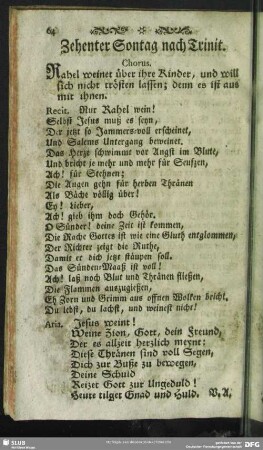 64
Zehenter Sontag nach Trinit.
Chorus.
Rahel weinet über ihre Kinder, und will
sich nicht trösten lassen; denn es ist aus
mit ihnen.
Recit. Nur Rahel wein!
Selbst Jesus muß es seyn,
Der jetzt so Jammers-voll erscheinet,
Und Salems Untergang beweinet.
Das Hertze schwimmt vor Angst im Blute,
Und bricht je mehr und mehr für Seufzen,
Ach! für Stehnen;
Die Augen gehn für herben Thränen
Als Bäche völlig über!
Ey! lieber,
Ach! gieb ihm doch Gehör.
O Sünder! deine Zeit ist kommen,
Die Rache Gottes ist wie eine Gluth entglommen,
Der Richter zeigt die Ruthe,
Damit er dich jetzt stäupen soll.
Das Sünden-Maaß ist voll!
Ach! laß noch Blut und Thränen fließen,
Die Flammen auszugießen,
Eh Zorn und Grimm aus offnen Wolken bricht,
Du lebst, du lachst, und weinest nicht!
Aria. Jesus weint!
Weine Zion, Gott, dein Freund,
Der es allzeit herzlich meynt:
Diese Thränen sind voll Segen,
Dich zur Buße zu bewegen,
Deine Schuld
Reizet Gott zur Ungeduld!
Heute tilget Gnad und Huld. V. A.
SLUB